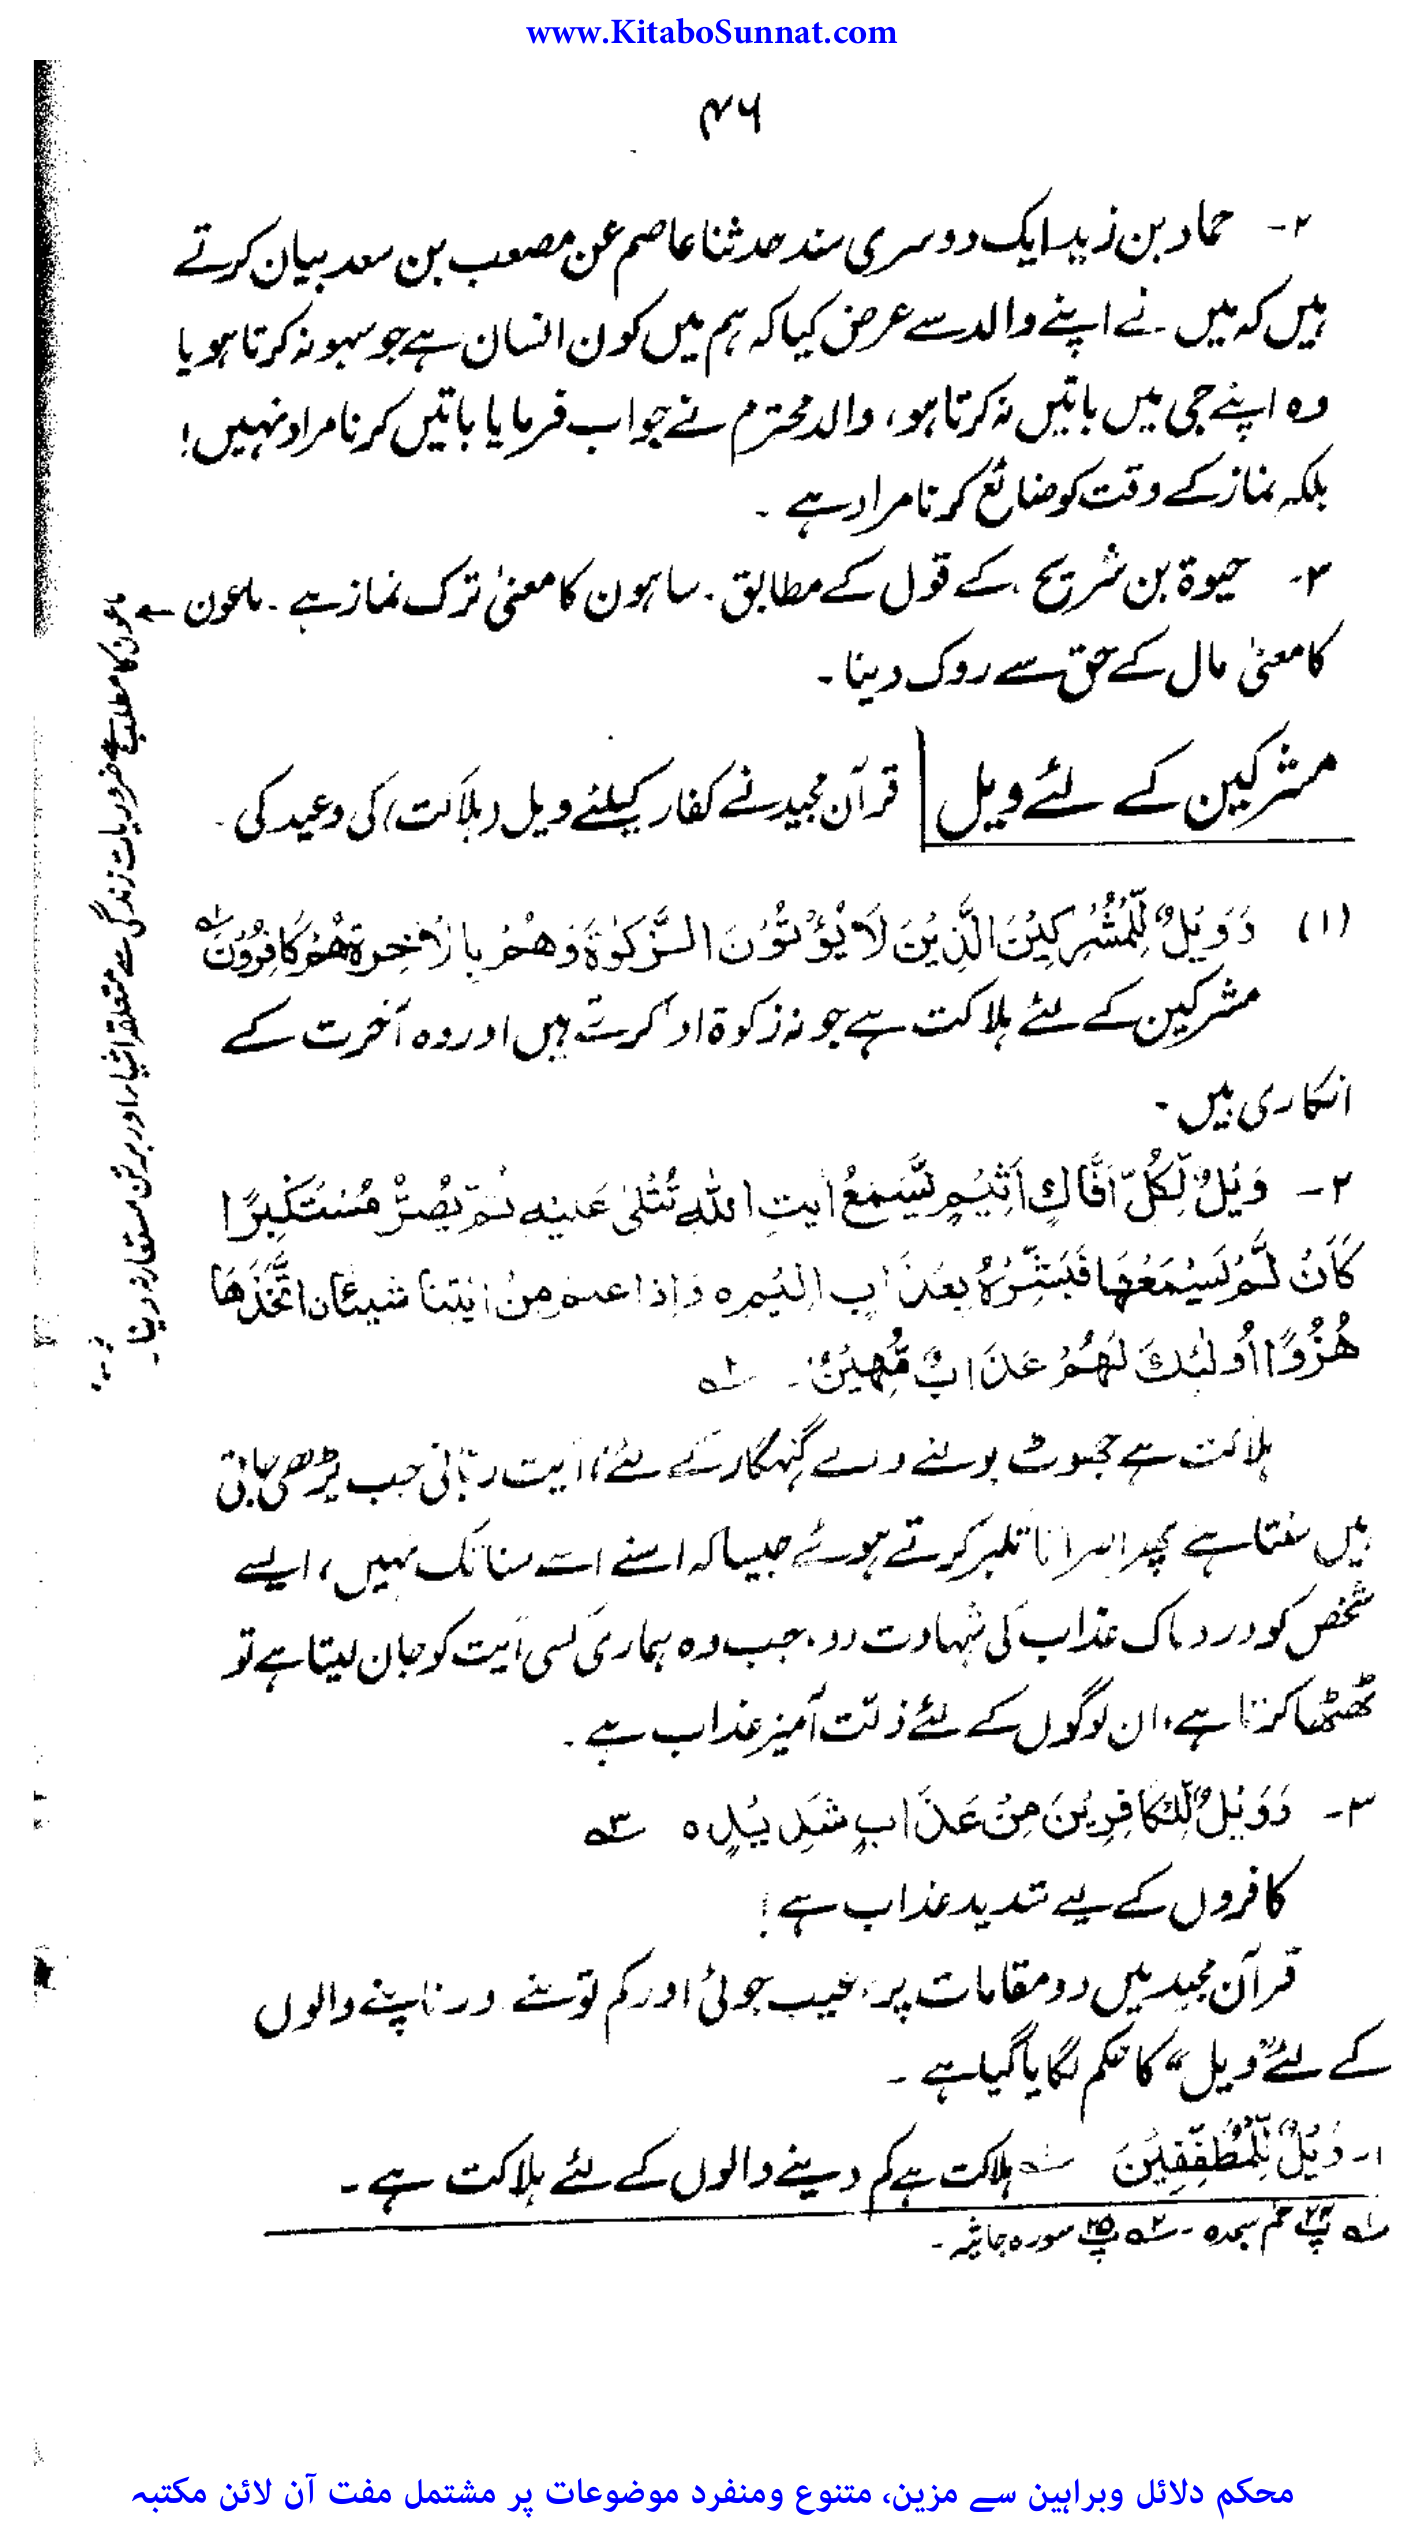 www.KitaboSunnat.com
۴۶
۲- حماد بن زید ایک دوسری سند حدثنا عاصم عن مصعب بن سعد بیان کرتے
ہیں کہ میں نے اپنے والد سے عرض کیا کہ ہم میں کون انسان ہے جو سہو نہ کرتا ہو یا
وہ اپنے جی میں باتیں نہ کرتا ہو، والد محترم نے جواب فرمایا باتیں کرنا مراد نہیں!
بلکہ نماز کے وقت کو ضائع کرنا مراد ہے ۔
۳- حیوۃ بن شریح کے قول کے مطابق ۔ ساہون کا معنیٰ ترک نماز ہے ۔ ماعون ←
کا معنیٰ مال کے حق سے روک دینا ۔
ماعون کا مطلب ہے ضروریات زندگی سے متعلقہ اشیاء اور برتن مستعار نہ دینا۔
مشرکین کے لئے ویل | قرآن مجید نے کفار کیلئے ویل (ہلاکت) کی وعید کی ۔
(۱) وَوَيْلٌ لِّلْمُشْرِكِيْنَ الَّذِيْنَ لَا يُؤْتُوْنَ الزَّكٰوةَ وَهُمْ بِالْاٰخِرَةِ هُمْ كَافِرُوْنَ ۱؎
مشرکین کے لئے ہلاکت ہے جو نہ زکوۃ ادا کرتے ہیں اور وہ آخرت کے
انکاری ہیں ۔
۲- وَيْلٌ لِّكُلِّ اَفَّاكٍ اَثِيْمٍ يَّسْمَعُ اٰيٰتِ اللّٰهِ تُتْلٰى عَلَيْهِ ثُمَّ يُصِرُّ مُسْتَكْبِرًا
كَاَنْ لَّمْ يَسْمَعْهَا فَبَشِّرْهُ بِعَذَابٍ اَلِيْمٍ ہ وَاِذَا عَلِمَ مِنْ اٰيٰتِنَا شَيْئَانِ اتَّخَذَهَا
هُزُوًا اُولٰئِكَ لَهُمْ عَذَابٌ مُّهِيْنٌ ۔ ۲؎
ہلاکت ہے جھوٹ بولنے والے گنہگار کے لئے، آیت ربّانی جب پڑھی جاتی
ہیں سنتا ہے پھر اصرار کرتے ہوئے جیسا کہ اسنے اسے سنا تک نہیں، ایسے
شخص کو دردناک عذاب کی شہادت دو، جب وہ ہماری کسی آیت کو جان لیتا ہے تو
ٹھٹھا کرتا ہے، ان لوگوں کے لئے ذلّت آمیز عذاب ہے ۔
۳- وَوَيْلٌ لِّلْكَافِرِيْنَ مِنْ عَذَابٍ شَدِيْدٍ ہ ۳؎
کافروں کے لیے شدید عذاب ہے!
قرآن مجید میں دو مقامات پر، عیب جوئی اور کم تولنے اور ناپنے والوں
کے لئے "ویل" کا حکم لگایا گیا ہے ۔
۱- وَيْلٌ لِّلْمُطَفِّفِيْنَ ؎ ہلاکت ہے کم دینے والوں کے لئے ہلاکت ہے ۔
۱؎ پ۲۴ حٰم سجدہ ۔ ۲؎ پ۲۵ سورہ جاثیہ ۔
محکم دلائل وبراہین سے مزین، متنوع ومنفرد موضوعات پر مشتمل مفت آن لائن مکتبہ